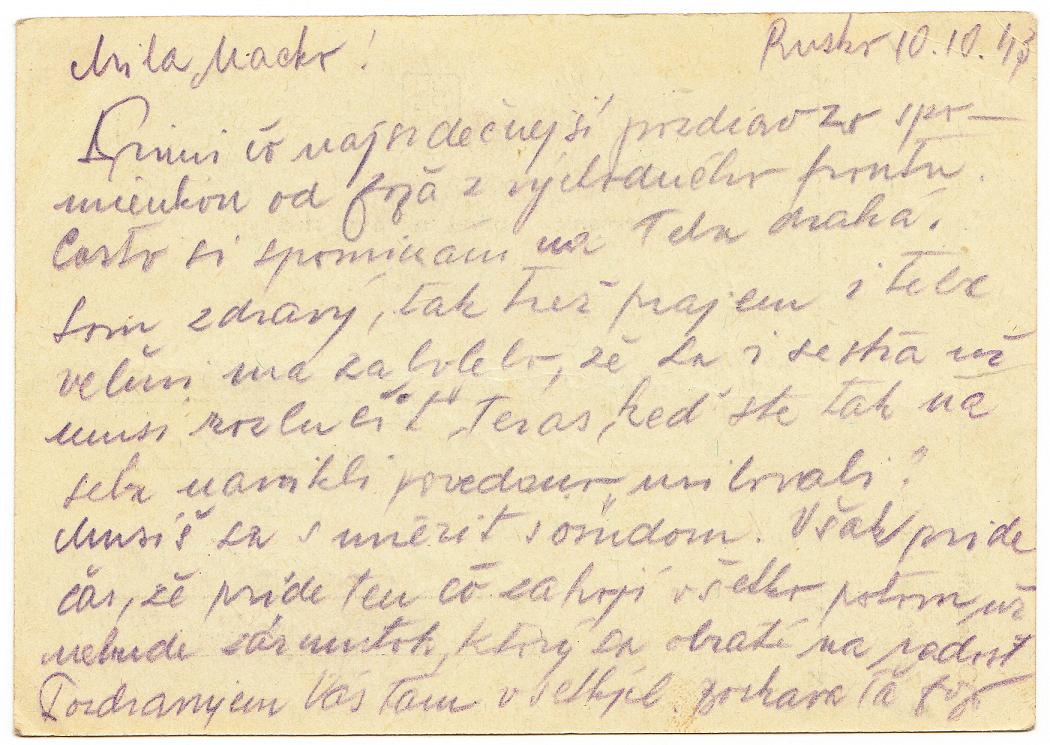 Mila Macko! Rusko 10.10.43
Primi čo najsrdečnejší pozdrav zo spo-
mienkou od z východného frontu.
Často si spominam na Teba draha.
Som zdravý, tak tiež prajem i Tebe
velmi ma zabolelo, že sa i sestra už
musi rozlučit Teras, keď ste tak na
seba navikli povedano milovali?
Musiš sa smierit s osudom. Však pride
čas, že príde ten čo zahojí všetko potom už
nebude zármutok, ktorý sa obráti na radost
Pozdravujem Vás tam všetkých boskava Ťa